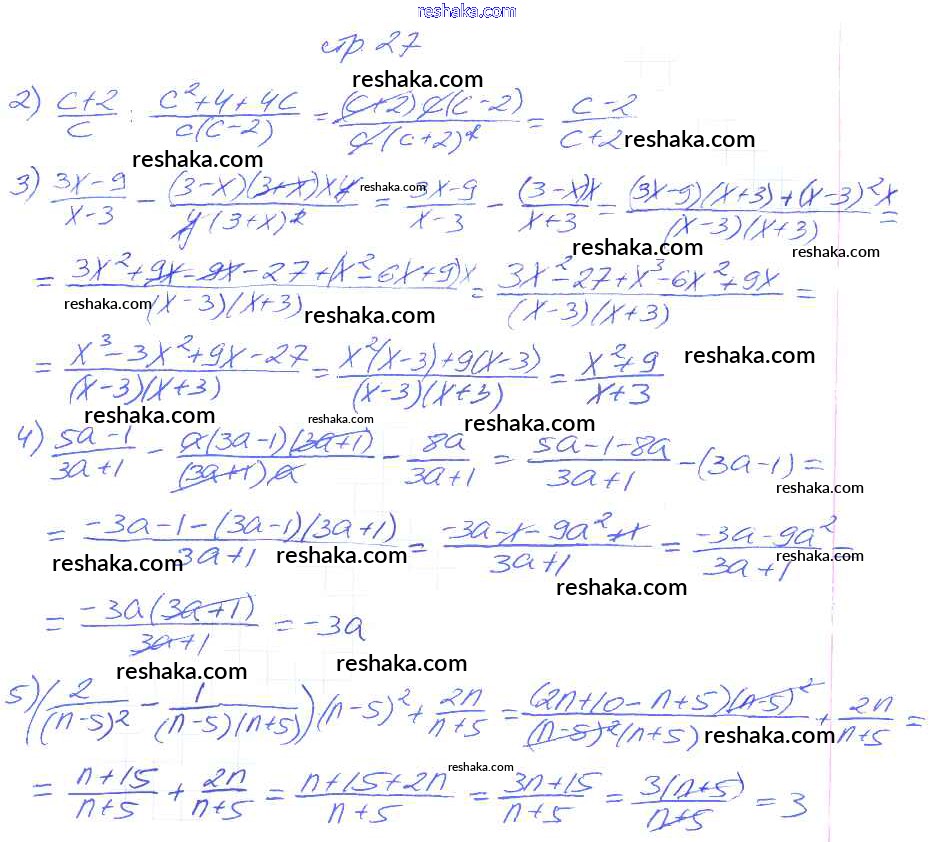 reshaka.com
стр. 27
reshaka.com
2) (c+2)/c : (c²+4+4c)/(c(c-2)) = ((c+2) c(c-2))/(c(c+2)²) = (c-2)/(c+2)
reshaka.com reshaka.com
3) (3x-9)/(x-3) - ((3-x)(3+x)xy)/(y(3+x)²) = (3x-9)/(x-3) - ((3-x)x)/(x+3) = ((3x-9)(x+3)+(x-3)²x)/((x-3)(x+3)) =
reshaka.com reshaka.com reshaka.com
= (3x²+9x-9x-27+(x²-6x+9)x)/((x-3)(x+3)) = (3x²-27+x³-6x²+9x)/((x-3)(x+3)) =
reshaka.com reshaka.com
= (x³-3x²+9x-27)/((x-3)(x+3)) = (x²(x-3)+9(x-3))/((x-3)(x+3)) = (x²+9)/(x+3)
reshaka.com
reshaka.com reshaka.com reshaka.com
4) (5a-1)/(3a+1) - (a(3a-1)(3a+1))/((3a+1)a) - 8a/(3a+1) = (5a-1-8a)/(3a+1) - (3a-1) =
reshaka.com
= (-3a-1-(3a-1)(3a+1))/(3a+1) = (-3a-1-9a²+1)/(3a+1) = (-3a-9a²)/(3a+1) =
reshaka.com reshaka.com reshaka.com reshaka.com
= (-3a(3a+1))/(3a+1) = -3a
reshaka.com reshaka.com
5) (2/(n-5)² - 1/((n-5)(n+5)))(n-5)² + 2n/(n+5) = ((2n+10-n+5)(n-5)²)/((n-5)²(n+5)) + 2n/(n+5) =
reshaka.com
reshaka.com
= (n+15)/(n+5) + 2n/(n+5) = (n+15+2n)/(n+5) = (3n+15)/(n+5) = (3(n+5))/(n+5) = 3